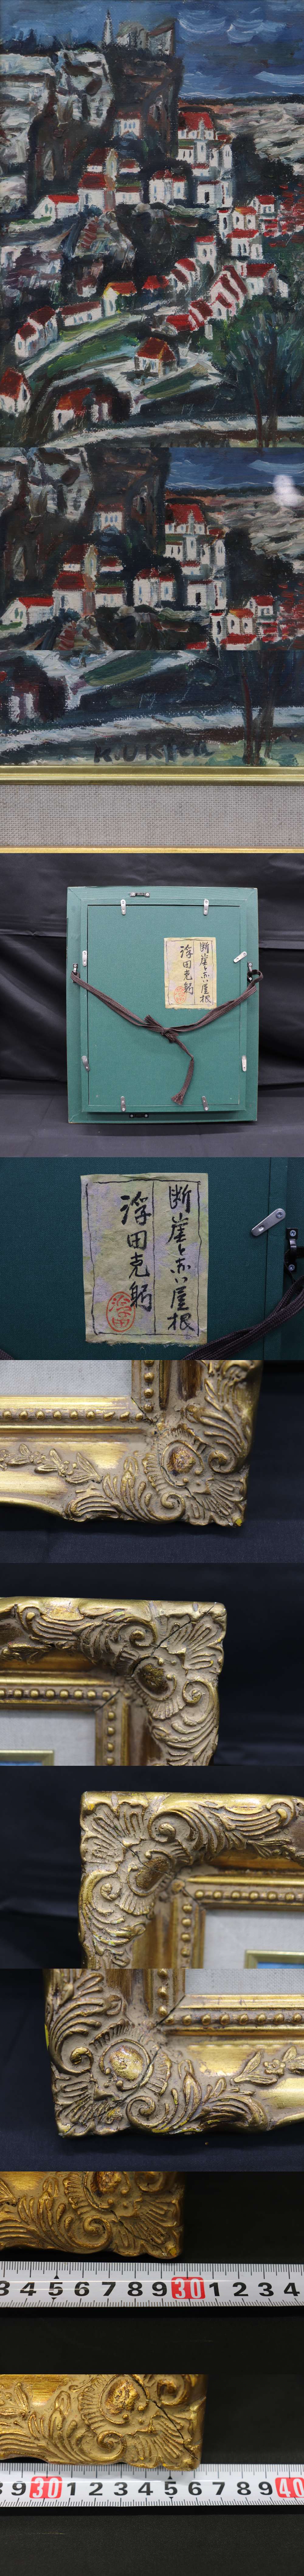 K.UKI
断崖と赤い屋根
浮田克躬
断崖と赤い屋根
浮田克躬
浮田
3 4 5 6 7 8 9 30 1 2 3 4
8 9 30 1 2 3 4 5 6 7 8 9 40